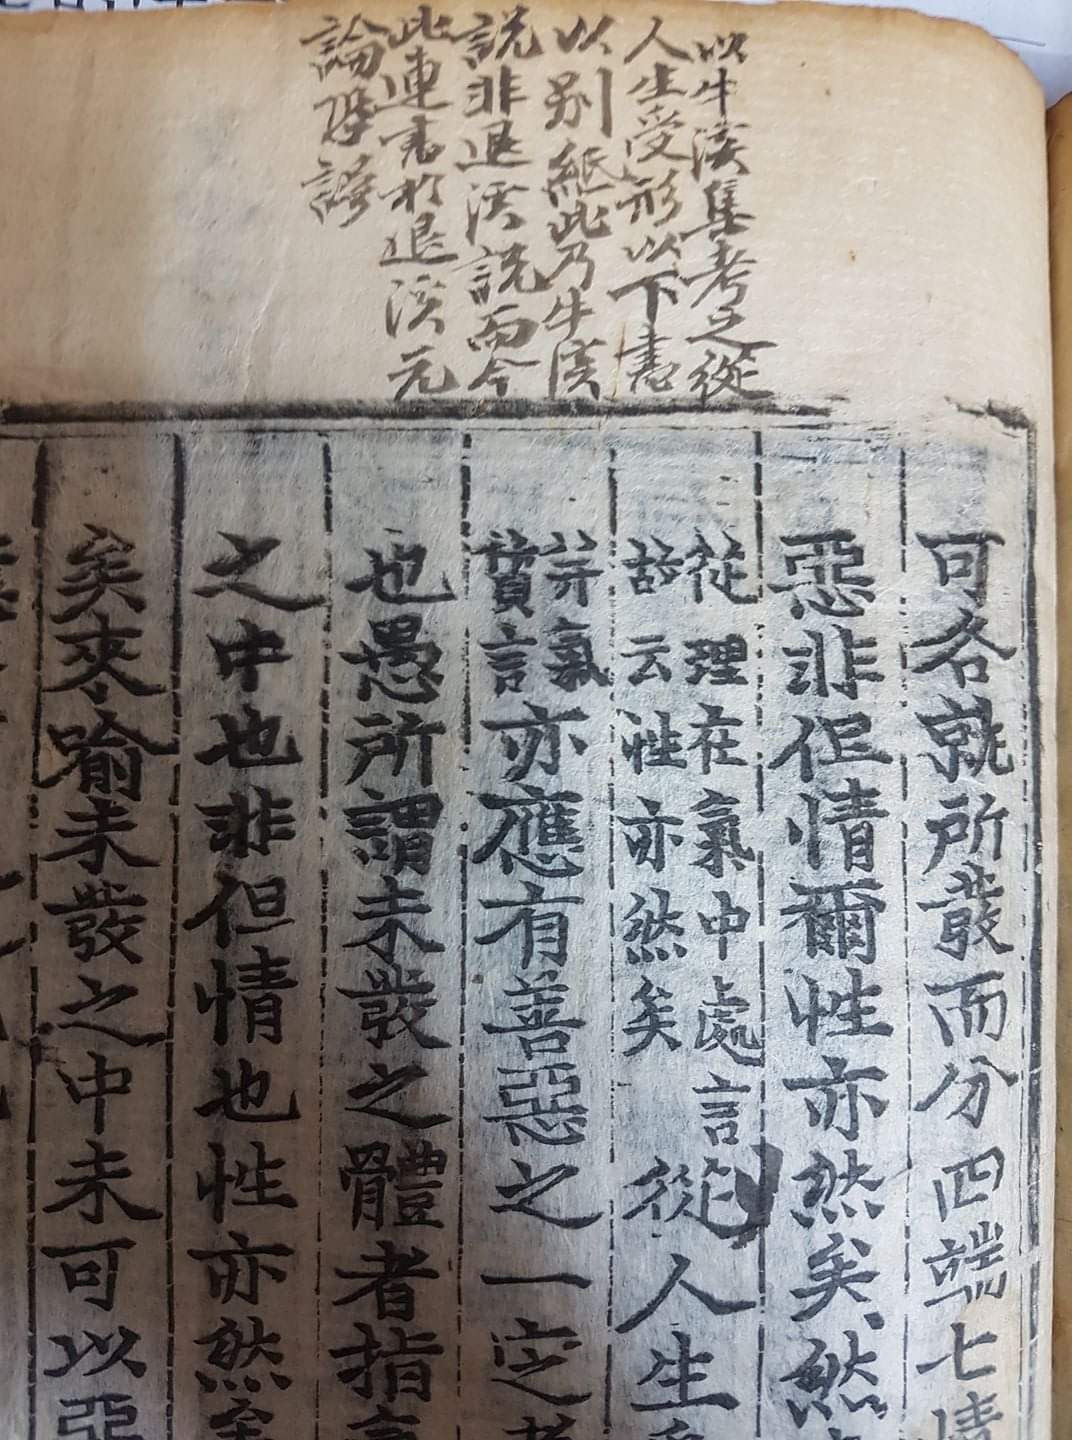 以牛溪集考之從
人生受形以下書
以別紙此乃牛溪
說非退溪說而今
此連書於退溪元
論恐誤
可各就所發而分四端七情
惡非但情爾性亦然矣然
從理在氣中處言
故云性亦然矣
從人生
并氣
質言
亦應有善惡之一定者
也愚所謂未發之體者指言
之中也非但情也性亦然
矣來喻未發之中未可以惡